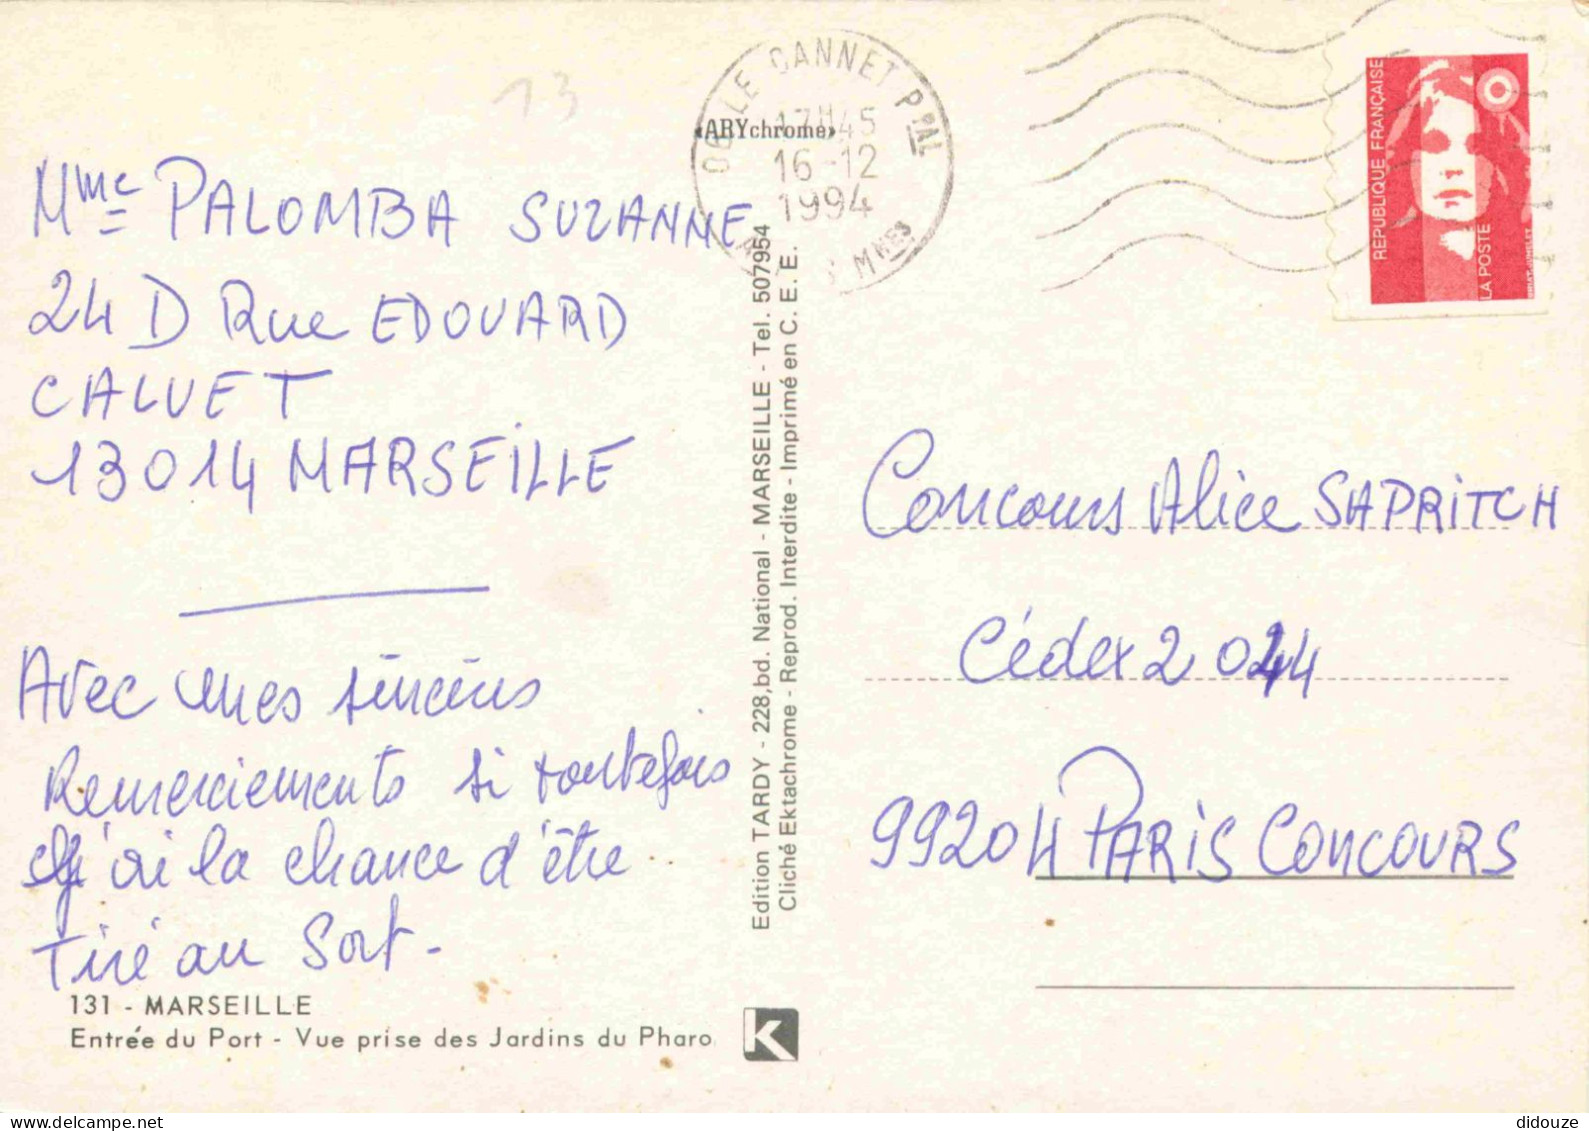 13
OB LE CANNET PPAL
17H45
16-12
1994
MMES
«ARYchrome»
RÉPUBLIQUE FRANÇAISE
LA POSTE
Mme PALOMBA SUZANNE
24 D Rue EDOUARD
CALVET
13014 MARSEILLE
Avec mes sincères
Remerciements si toutefois
j'ai la chance d'être
Tiré au Sort -
131 - MARSEILLE
Entrée du Port - Vue prise des Jardins du Pharo
Edition TARDY - 228,bd. National - MARSEILLE - Tel. 507954
Cliché Ektachrome - Reprod. Interdite - Imprimé en C. E. E.
K
Concours Alice SAPRITCH
Cédex 2 044
99204 PARIS CONCOURS
delcampe.net
didouze